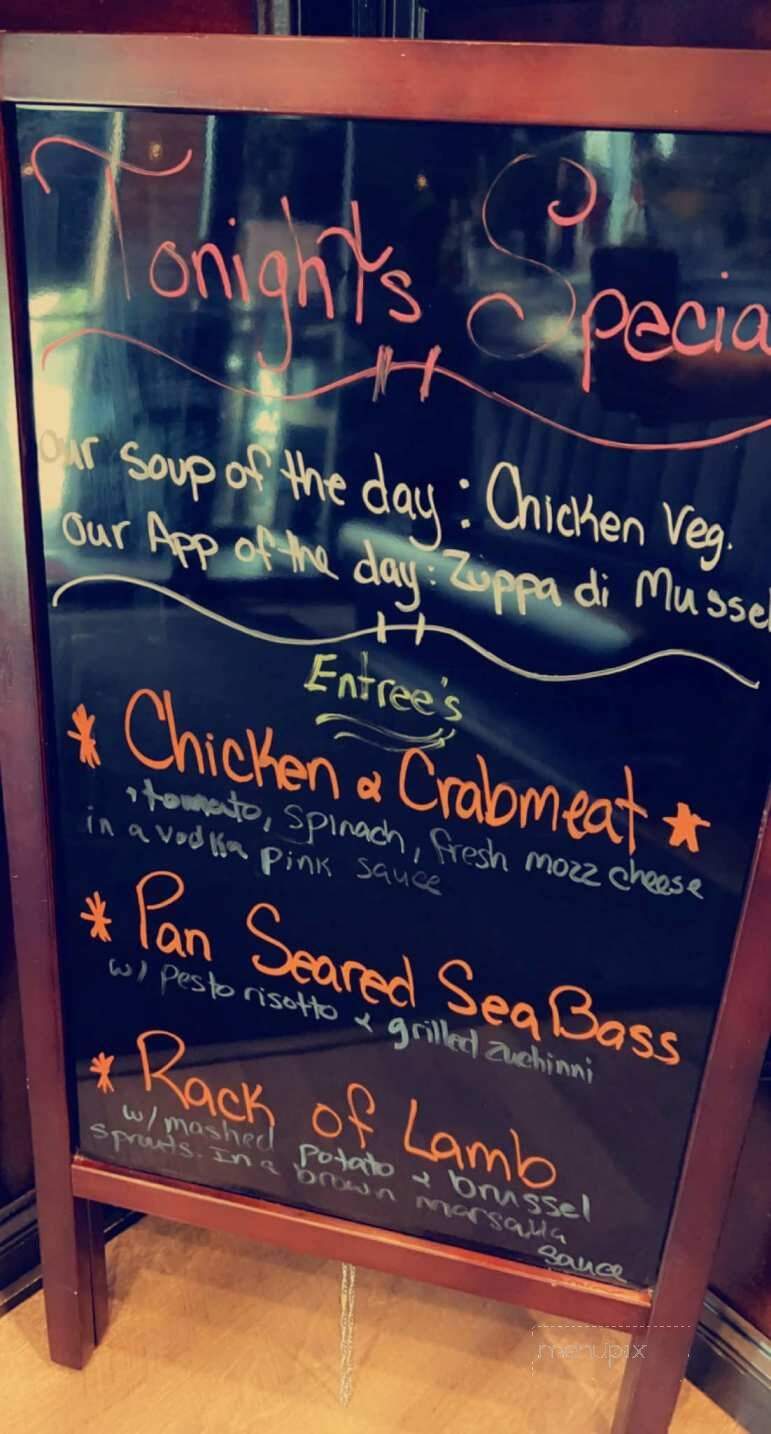 Tonights Specia
Our Soup of the day: Chicken Veg.
Our App of the day: Zuppa di Mussel
Entree's
* Chicken & Crabmeat *
, tomato, spinach, fresh mozz cheese
in a vodka pink sauce
* Pan Seared Sea Bass
w/ pesto risotto & grilled zuchinni
* Rack of Lamb
w/mashed potato & brussel
sprouts. In a brown marsalla
sauce
menupix